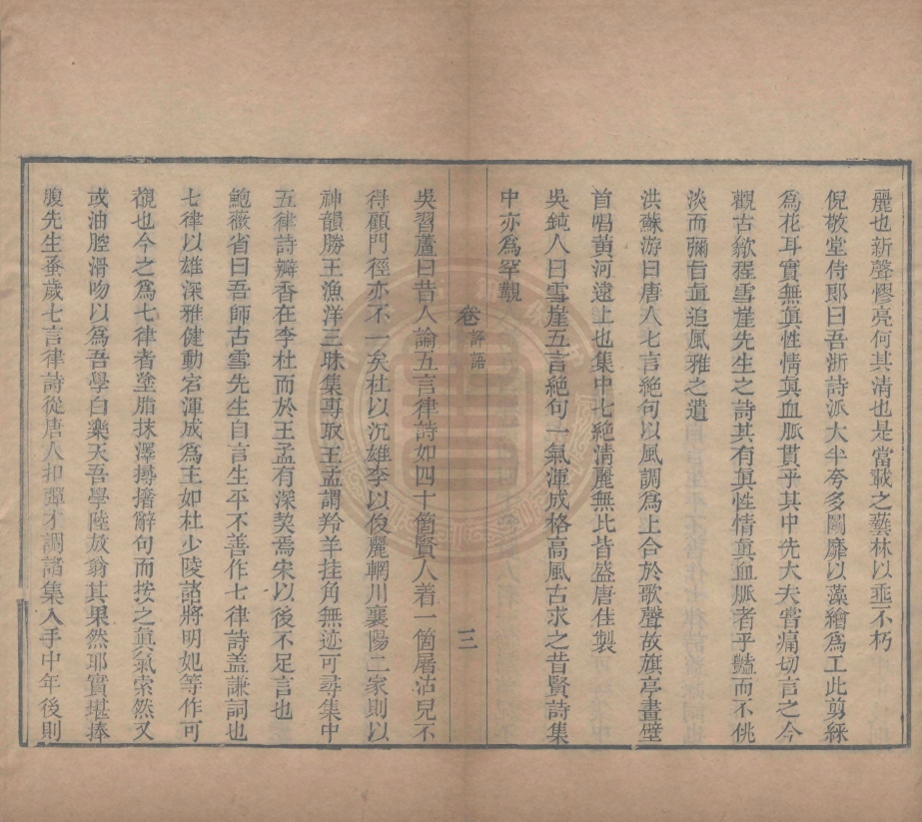 麗也新聲慘亮何其清也是當載之藝林以垂不朽
倪敬堂侍郎曰吾浙詩派大半夸多鬬靡以藻繪爲工此剪綵
爲花耳實無眞性情眞血脈貫乎其中先大夫嘗痛切言之今
觀古歙程雪崖先生之詩其有眞性情眞血脈者乎豔而不佻
淡而彌旨直追風雅之遺
洪蘇游曰唐人七言絶句以風調爲上合於歌聲故旗亭畫壁
首唱黃河遠上也集中七絶清麗無比皆盛唐佳製
吳鈍人曰雪崖五言絶句一氣渾成格高風古求之昔賢詩集
中亦爲罕覯
卷 評語 三
吳習蘆曰昔人論五言律詩如四十箇賢人着一箇屠沽兒不
得顧門徑亦不一矣杜以沉雄李以俊麗輞川襄陽二家則以
神韻勝王漁洋三昧集專取王孟謂羚羊挂角無迹可尋集中
五律詩瓣香在李杜而於王孟有深契焉宋以後不足言也
鮑薇省曰吾師古雪先生自言生平不善作七律詩盖謙詞也
七律以雄深雅健動宕渾成爲主如杜少陵諸將明妃等作可
觀也今之爲七律者塗脂抹澤撏撦辭句而按之眞氣索然又
或油腔滑吻以爲吾學白樂天吾學陸放翁其果然耶實堪捧
腹先生蚤歲七言律詩從唐人扣彈才調諸集入手中年後則